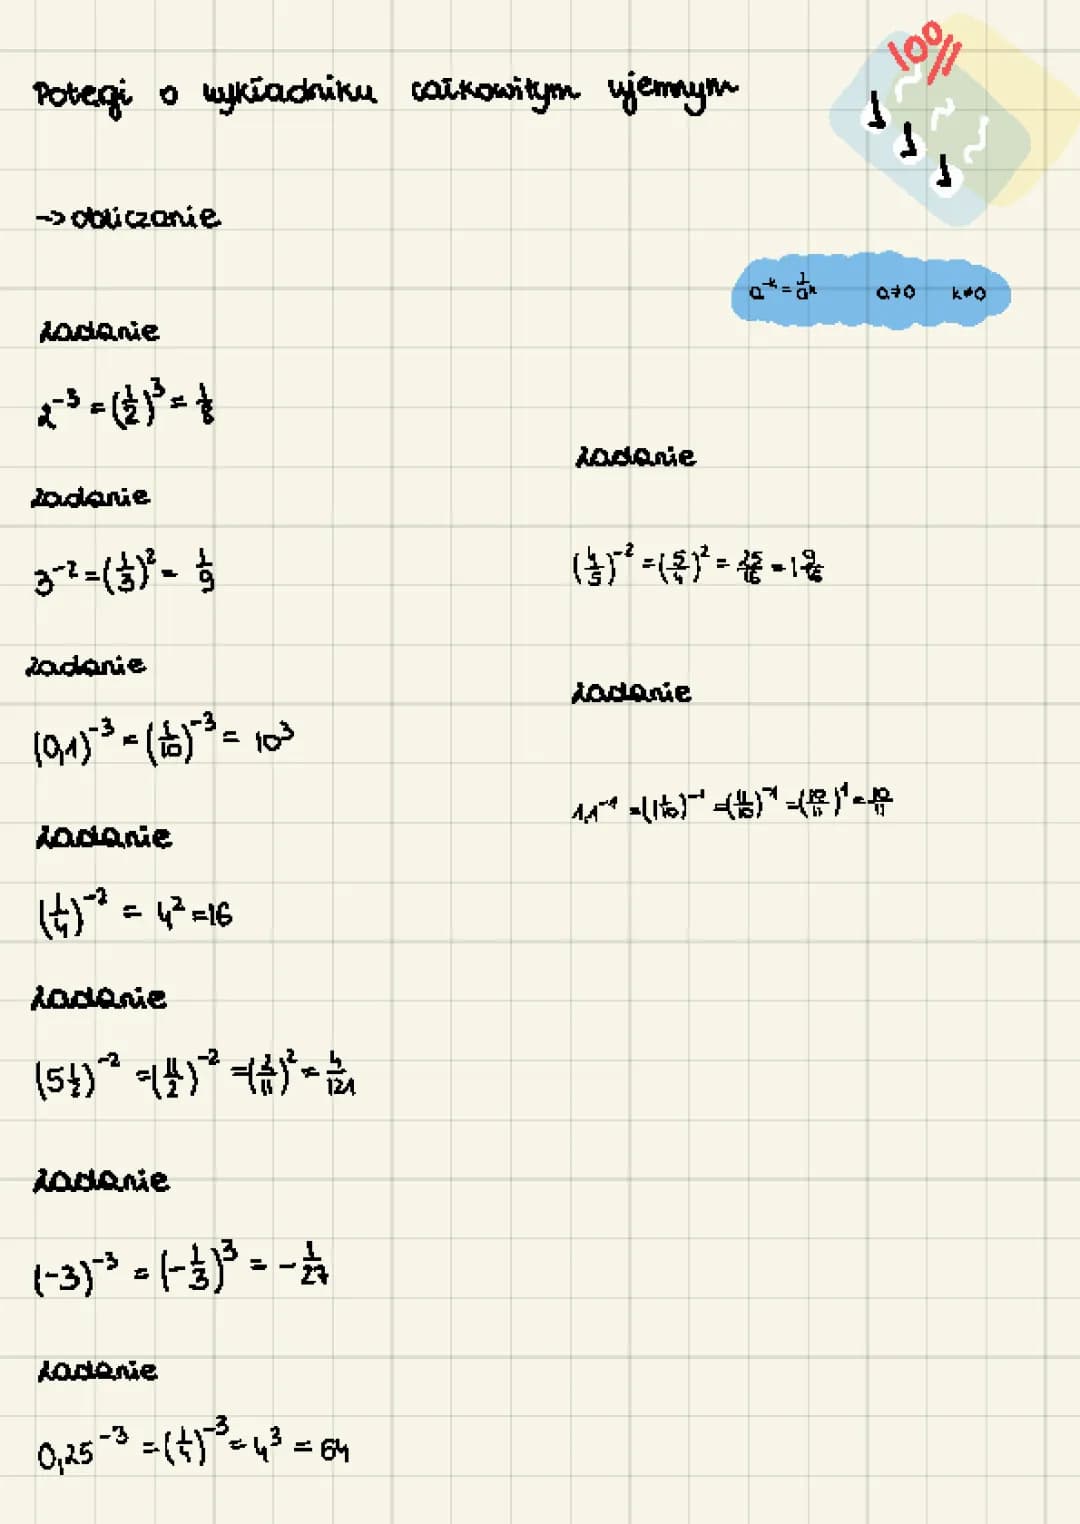 Potęgi o wykładniku całkowitym ujemnym
100%
-> obliczanie
a^-k = 1/a^k a≠0 k≠0
zadanie
2^-3 = (1/2)^3 = 1/8
zadanie
3^-2 = (1/3)^2 = 1/9
zadanie
(0,1)^-3 = (1/10)^-3 = 10^3
zadanie
(1/4)^-2 = 4^2 = 16
zadanie
(5 1/2)^-2 = (11/2)^-2 = (2/11)^2 = 4/121
zadanie
(-3)^-3 = (-1/3)^3 = -1/27
zadanie
0,25^-3 = (1/4)^-3 = 4^3 = 64
zadanie
(4/5)^-2 = (5/4)^2 = 25/16 = 1 9/16
zadanie
1,1^-1 = (1 1/10)^-1 = (11/10)^-1 = (10/11)^1 = 10/11